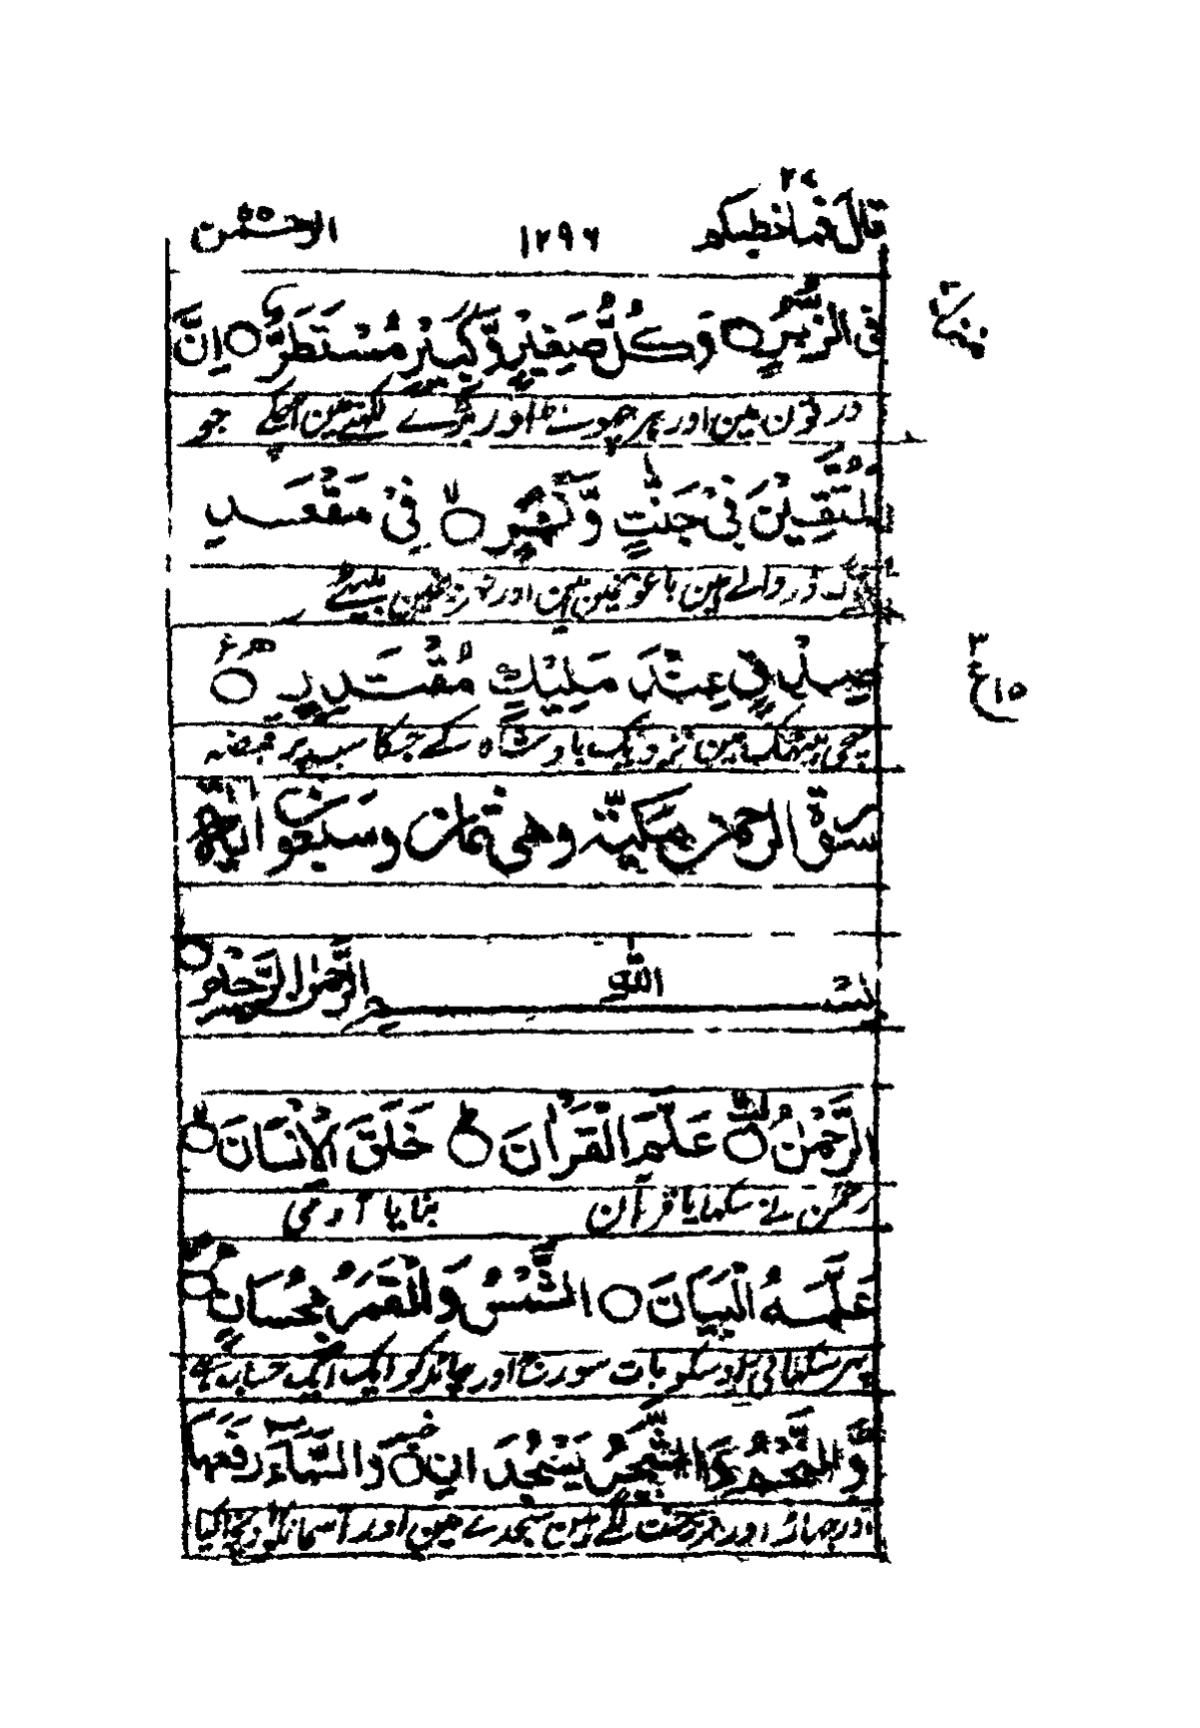 قال فما خطبكم ٢٧ ١٢٩٦ الرحمٰن ٥٥
فِي الزُّبُرِ ۝ وَكُلُّ صَغِيْرٍ وَّكَبِيْرٍ مُّسْتَطَرٌ ۝ اِنَّ
ورقون مین اور ہر چھوٹے اور بڑے لکھنے مین آچکے جو
الْمُتَّقِيْنَ فِيْ جَنّٰتٍ وَّنَهَرٍ ۝ فِيْ مَقْعَدِ
لوگ ڈر والے ہین باغونمین ہین اور نہرونمین بیٹھے
صِدْقٍ عِنْدَ مَلِيْكٍ مُّقْتَدِرٍ ۝
سچی بیٹھک مین نزدیک بادشاہ کے جسکا سب پر قبضہ
٣
ع ١٥
سورة الرحمن مكية وهي ثمان وسبعون اية
بِسْمِ اللّٰهِ الرَّحْمٰنِ الرَّحِيْمِ ۝
اَلرَّحْمٰنُ ۝ عَلَّمَ الْقُرْاٰنَ ۝ خَلَقَ الْاِنْسَانَ ۝
رحمٰن نے سکھایا قرآن بنایا آدمی
عَلَّمَهُ الْبَيَانَ ۝ اَلشَّمْسُ وَالْقَمَرُ بِحُسْبَانٍ ۝
پھر سکھائی اوسکو بات سورج اور چاند کو ایک حساب ہے
وَّالنَّجْمُ وَالشَّجَرُ يَسْجُدَانِ ۝ وَالسَّمَآءَ رَفَعَهَا
اور جھاڑ اور درخت لگے ہین سجدے مین اور آسمانکو اونچا کیا